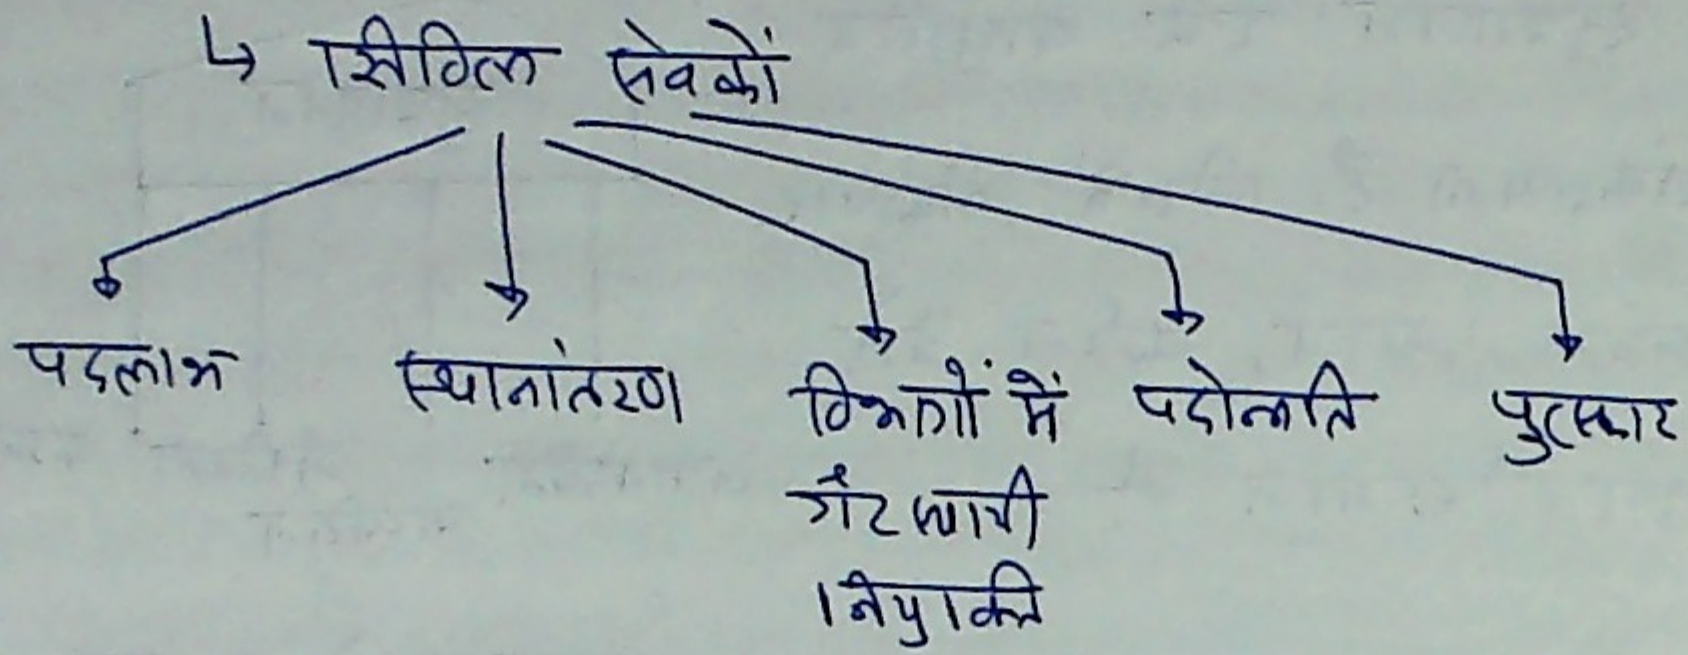 ↳ सिविल सेवकों
पदलाभ
स्थानांतरण
विभागों में
गैर स्थायी
नियुक्ति
पदोन्नति
पुरस्कार